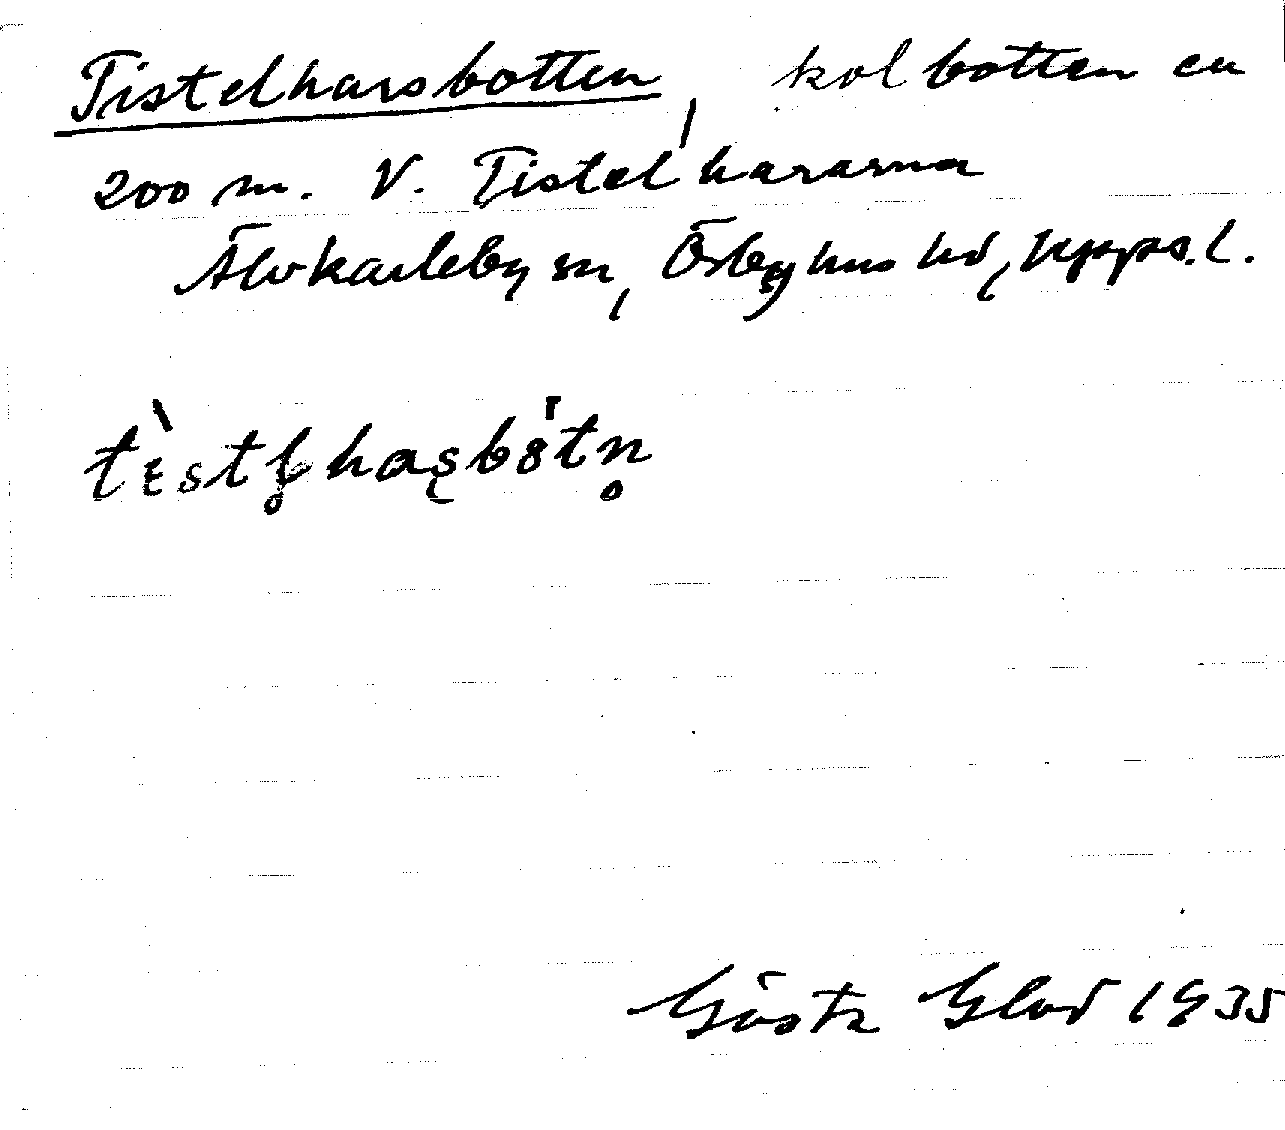 Tistelharsbotten, kolbotten en
200 m. V. Tistelhararna
Älvkarleby sn, Örbyhus hd, Upps. l.
tìstl̥haʂbòtn̥
Gösta Glad 1935